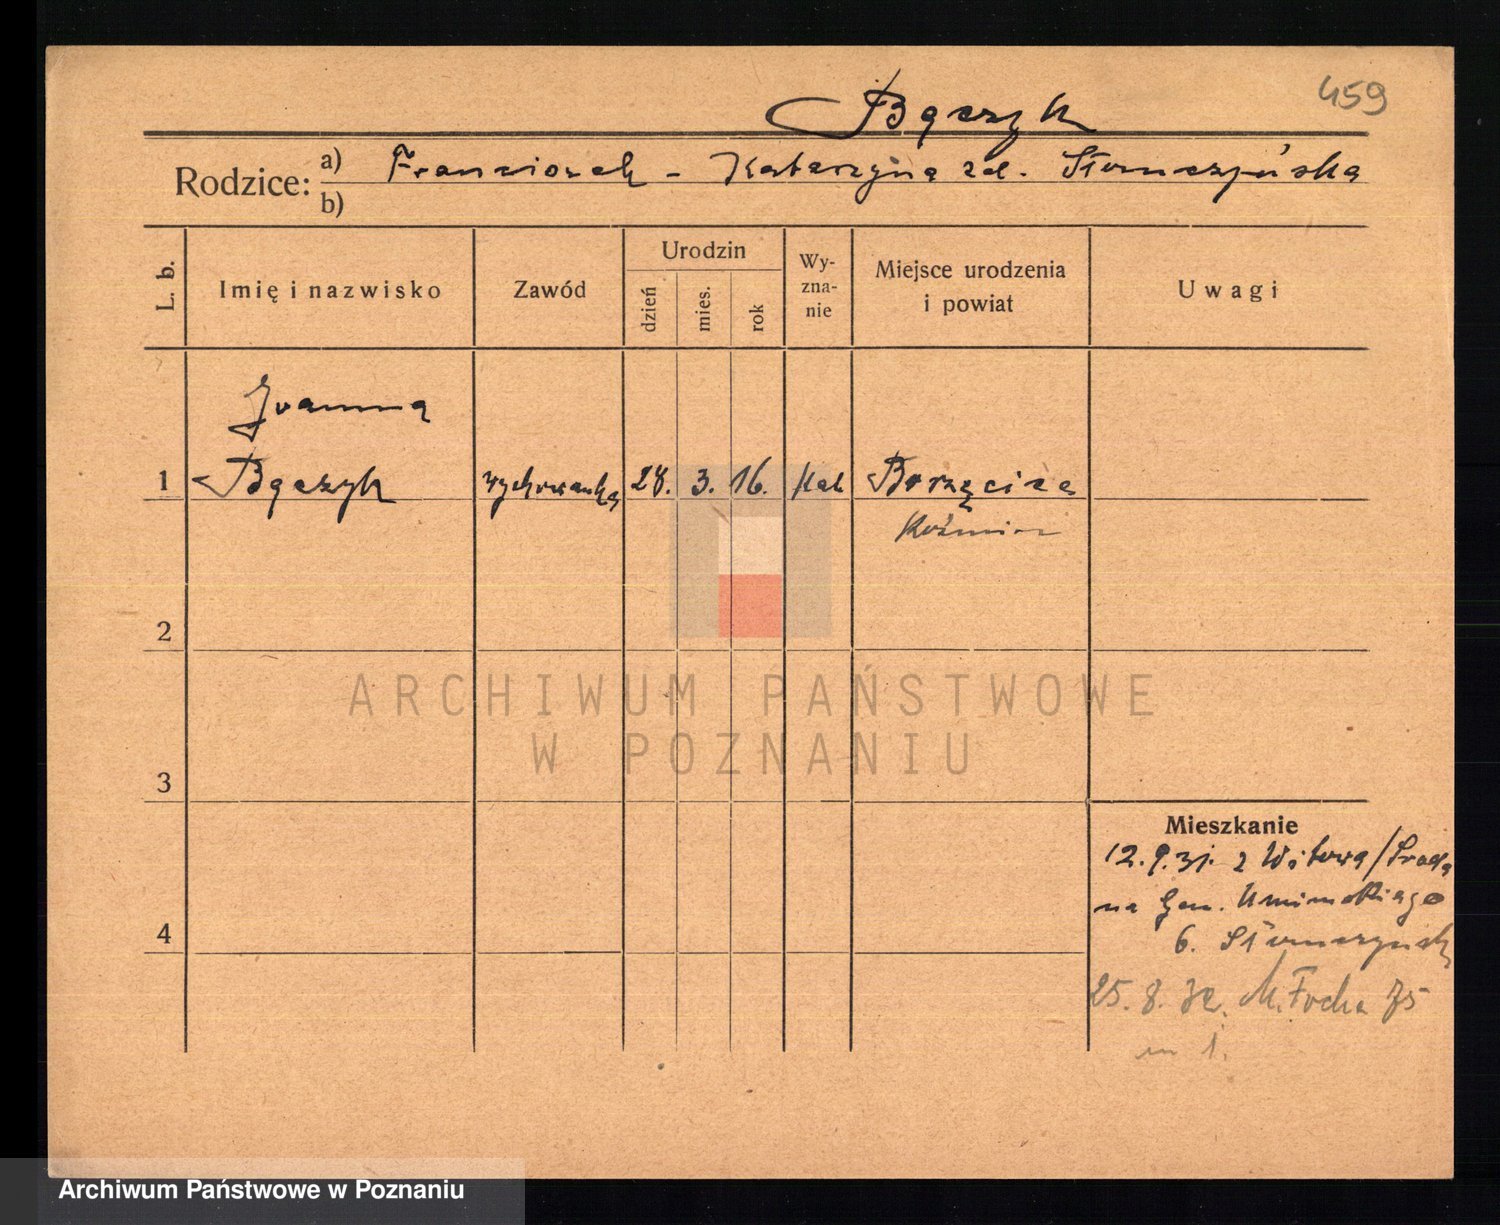 459
Bączyk
Rodzice: a) Franciszek - Katarzyna zd. Słomczyńska
b)
L. b.
Imię i nazwisko
Zawód
Urodzin
dzień
mies.
rok
Wy-
zna-
nie
Miejsce urodzenia
i powiat
Uwagi
Joanna
1 Bączyk wychowanka 28. 3. 16. kat Borzęcice
Koźmin
2
ARCHIWUM PAŃSTWOWE
W POZNANIU
3
Mieszkanie
12.9.31. z Witowa / Środa
na Gen. Umińskiego
4
6. Słomczyńsk
25. 8. 32. M. Focha 75
m 1.
Archiwum Państwowe w Poznaniu